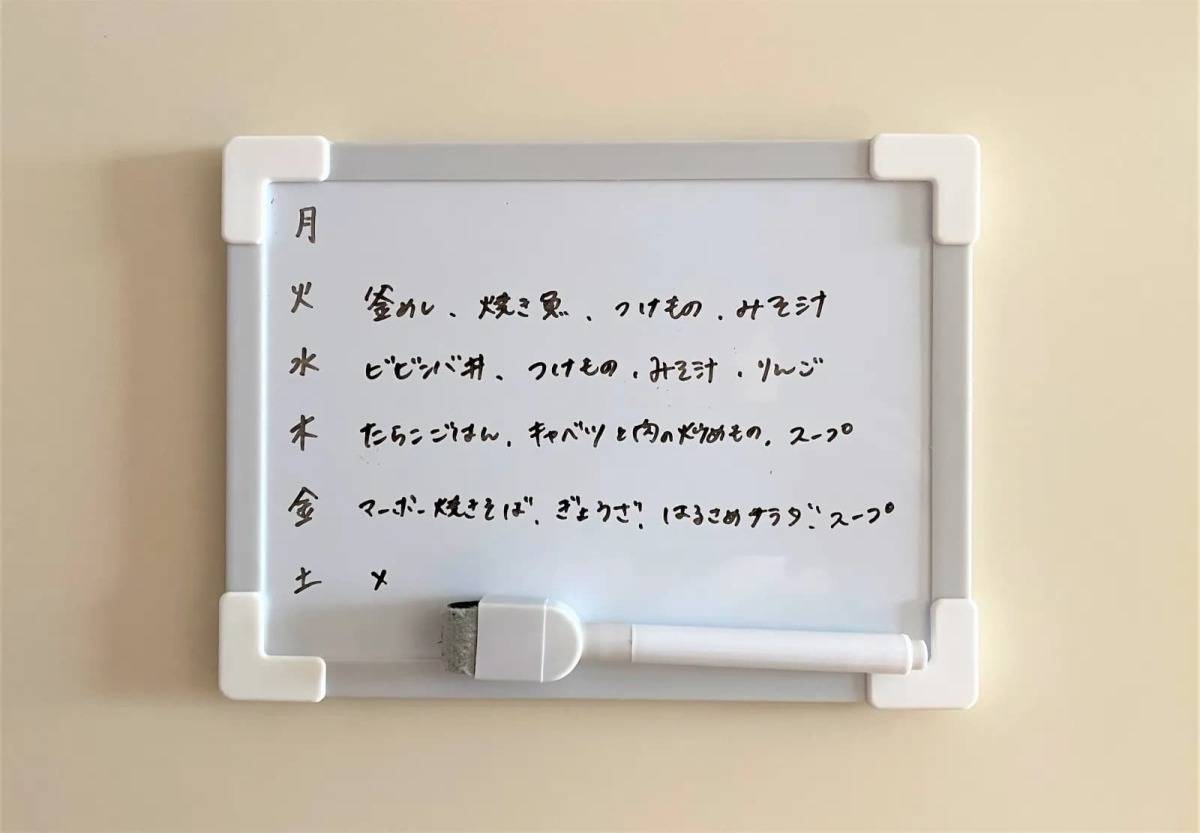 月
火 釜めし、焼き魚、つけもの、みそ汁
水 ビビンバ丼、つけもの、みそ汁、りんご
木 たらこごはん、キャベツと肉の炒めもの、スープ
金 マーボー焼きそば、ぎょうざ、はるさめサラダ、スープ
土 ×